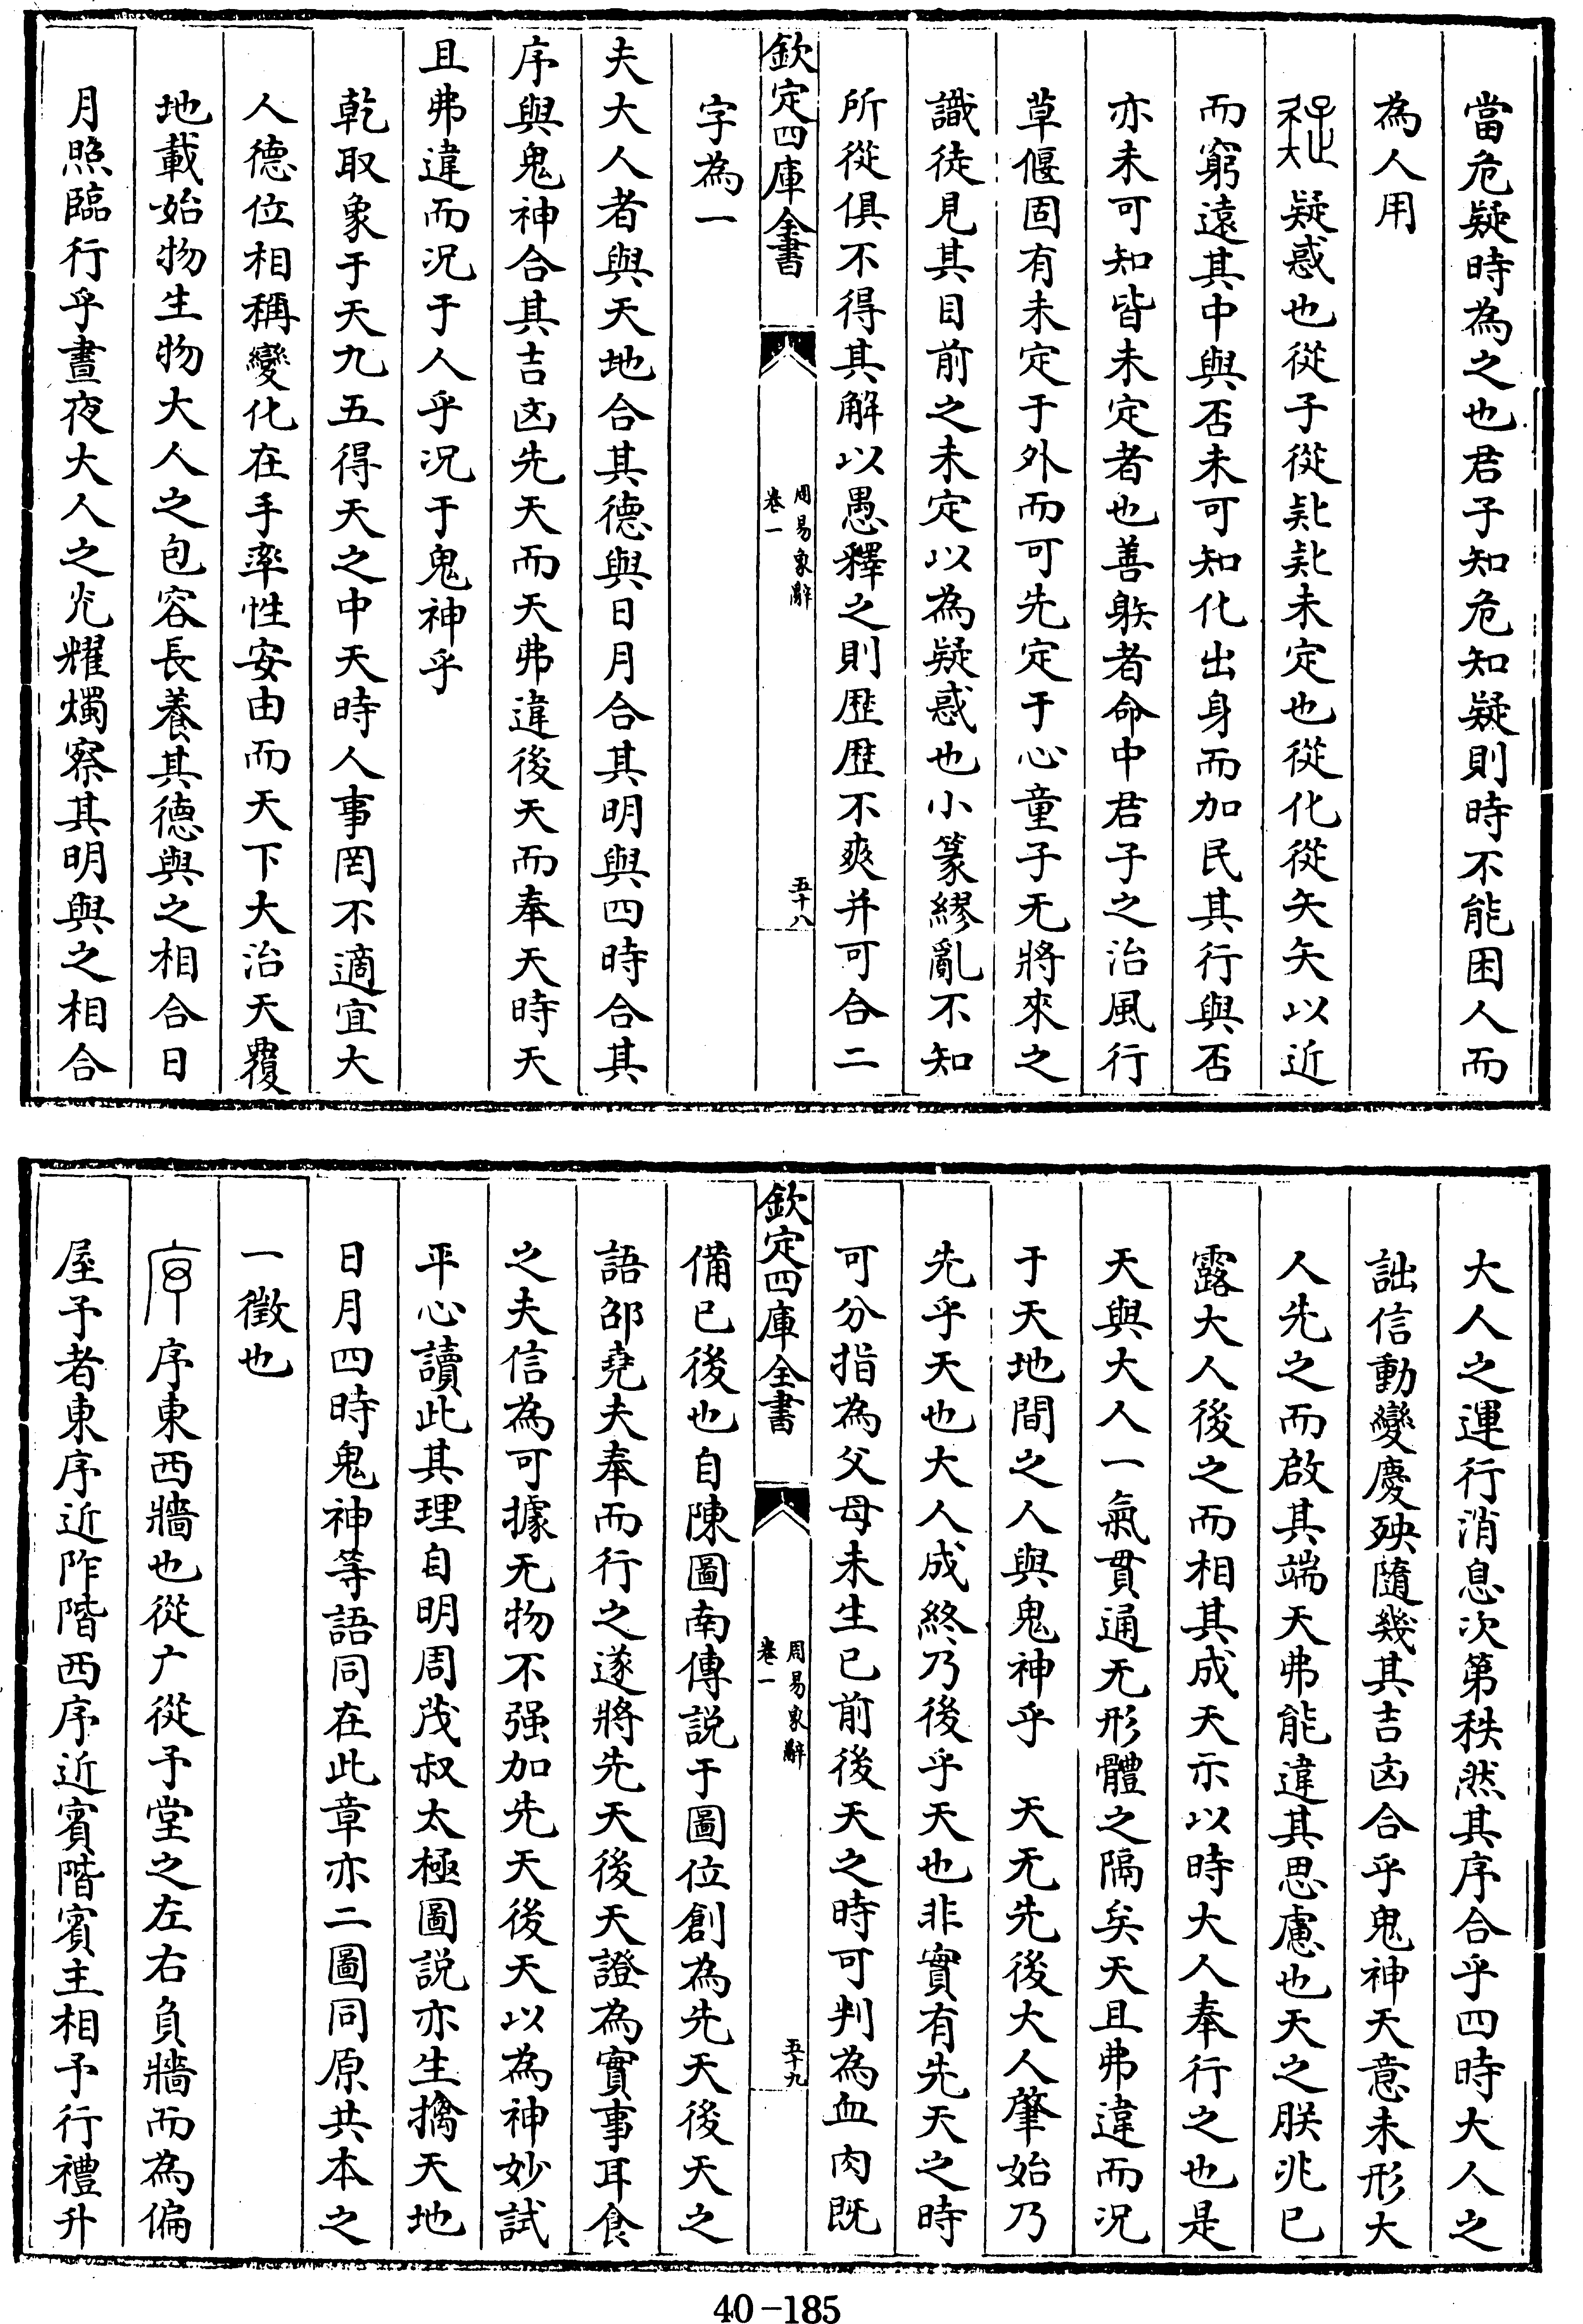 當危疑時為之也君子知危知疑則時不能困人而
為人用
疑惑也從子從𠤕𠤕未定也從化從矢矢以近
而窮遠其中與否未可知化出身而加民其行與否
亦未可知皆未定者也善躲者命中君子之治風行
草偃固有未定于外而可先定于心童子无將來之
識徒見其目前之未定以為疑惑也小篆繆亂不知
所從俱不得其解以愚釋之則歴歴不爽并可合二
字為一
欽定四庫全書
周易象辭
卷一
五十八
夫大人者與天地合其德與日月合其明與四時合其
序與鬼神合其吉凶先天而天弗違後天而奉天時天
且弗違而況于人乎況于鬼神乎
乾取象于天九五得天之中天時人事罔不適宜大
人德位相稱變化在手率性安由而天下大治天覆
地載始物生物大人之包容長養其德與之相合日
月照臨行乎晝夜大人之光耀燭察其明與之相合
大人之運行消息次第秩然其序合乎四時大人之
詘信動變慶殃隨幾其吉凶合乎鬼神天意未形大
人先之而啟其端天弗能違其思慮也天之朕兆已
露大人後之而相其成天示以時大人奉行之也是
天與大人一氣貫通无形體之隔矣天且弗違而況
于天地間之人與鬼神乎 天无先後大人肇始乃
先乎天也大人成終乃後乎天也非實有先天之時
可分指為父母未生已前後天之時可判為血肉既
欽定四庫全書
周易象辭
卷一
五十九
備已後也自陳圖南傳説于圖位創為先天後天之
語邵堯夫奉而行之遂將先天後天證為實事耳食
之夫信為可據无物不强加先天後天以為神妙試
平心讀此其理自明周茂叔太極圖説亦生擒天地
日月四時鬼神等語同在此章亦二圖同原共本之
一徵也
序東西牆也從广從予堂之左右負牆而為偏
屋予者東序近阼階西序近賓階賓主相予行禮升
40-185